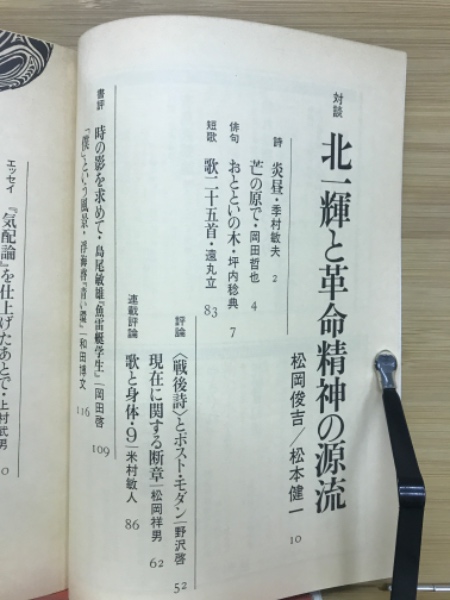 対談
北一輝と革命精神の源流
松岡俊吉／松本健一 10
詩 炎昼・季村敏夫 2
芒の原で・岡田哲也 4
俳句 おとといの木・坪内稔典 7
短歌 歌二十五首・遠丸立 83
評論 〈戦後詩〉とポスト・モダン｜野沢啓 52
現在に関する断章｜松岡祥男 62
連載評論 歌と身体・9｜米村敏人 86
書評 時の影を求めて・島尾敏雄『魚雷艇学生』｜岡田啓 109
「僕」という風景・ 『青い 』｜和田博文 116
エッセイ 『気配論』を仕上げたあとで・上村武男